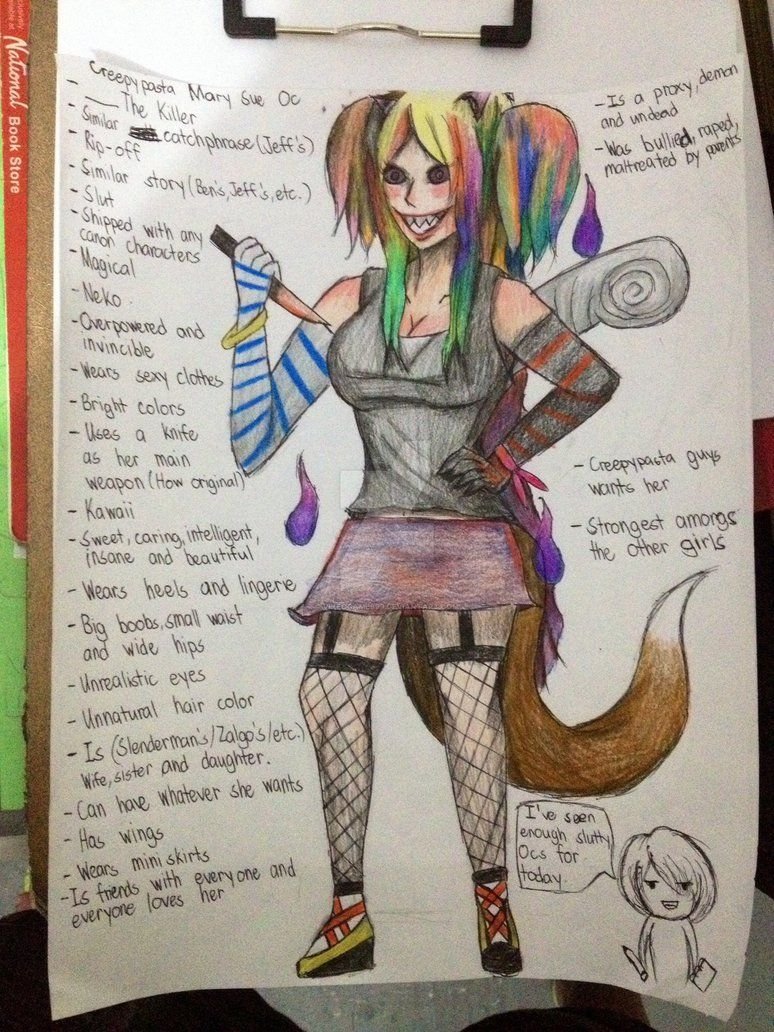 National
Book Store
- Creepypasta Mary Sue Oc
- ___ The Killer
- Similar catchphrase (Jeff's)
- Rip-off
- Similar story (Ben's, Jeff's, etc.)
- Slut
- Shipped with any
canon characters
- Magical
- Neko
- Overpowered and
invincible
- Wears sexy clothes
- Bright colors
- Uses a knife
as her main
weapon (How original)
- Kawaii
- sweet, caring, intelligent,
insane and beautiful
- Wears heels and lingerie
- Big boobs, small waist
and wide hips
- Unrealistic eyes
- Unnatural hair color
- Is (Slenderman's/Zalgo's/etc.)
wife, sister and daughter.
- Can have whatever she wants
- Has wings
- Wears mini skirts
- Is friends with everyone and
everyone loves her
- Is a proxy, demon
and undead
- Was bullied, raped,
maltreated by parents
- Creepypasta guys
wants her
- Strongest amongs
the other girls
I've seen
enough slutty
Ocs for
today.